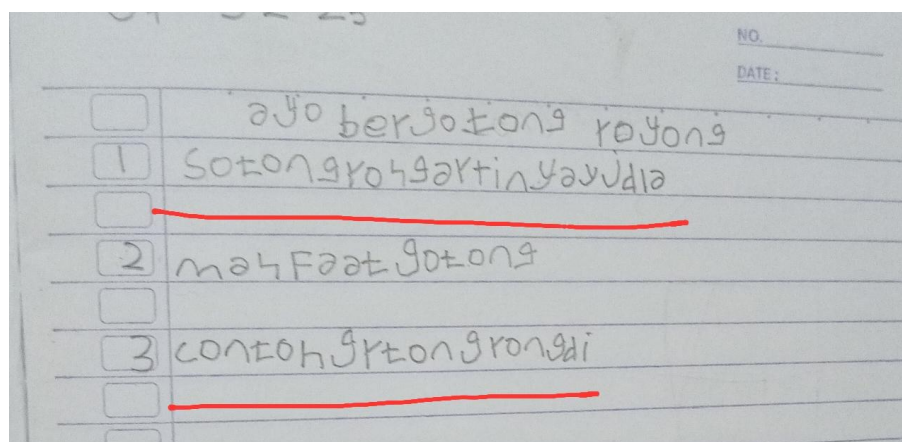 NO.
DATE:
ayo bergotong royong
1 sotongrongartinyayudla
2 manfaat gotong
3 contohgrtongrongdi